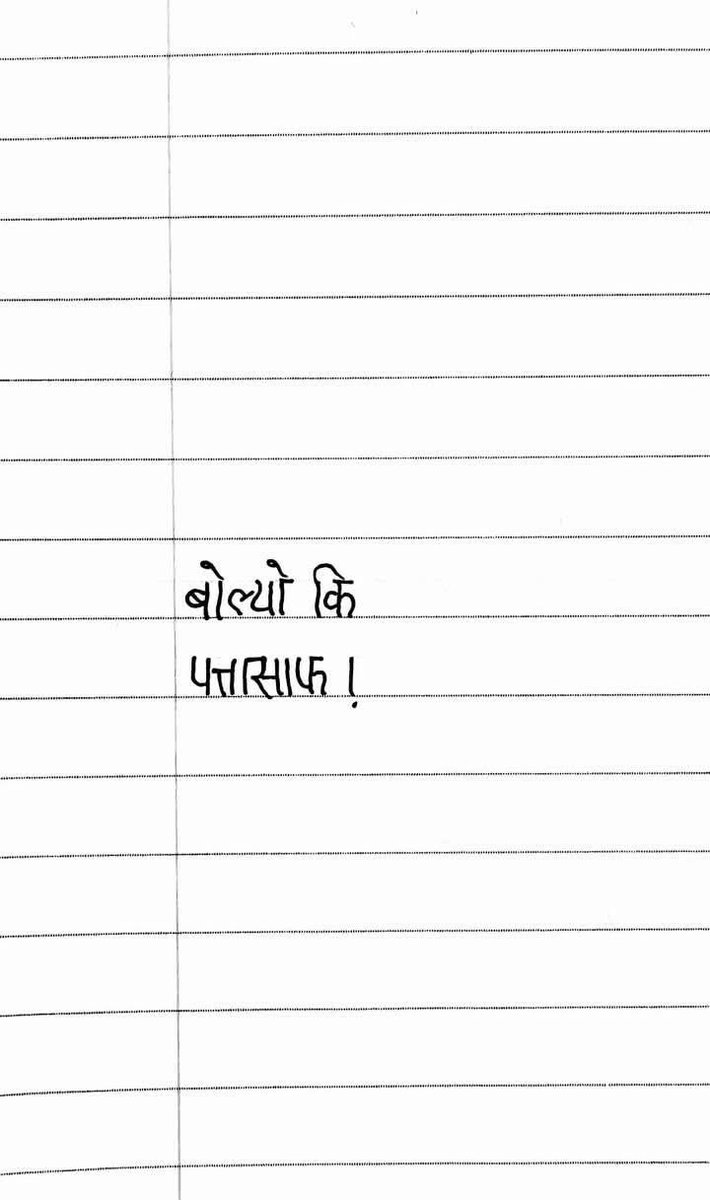 बोल्यो कि
पत्तासाफ !